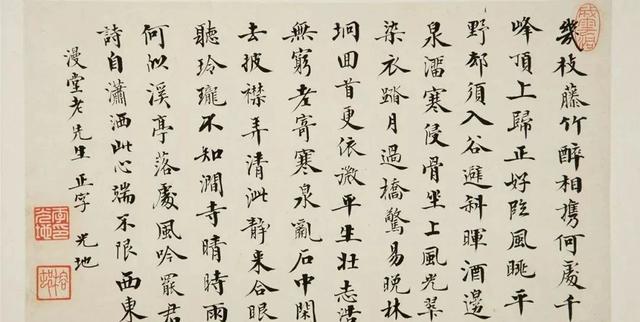 幾枝藤竹醉相攜何處千
峰頂上歸正好臨風眺平
野都須入谷避斜暉酒邊
泉溜寒侵骨坐上風光翠
染衣踏月過橋驚易晚林
坰回首更依微平生壯志浩
無窮老寄寒泉亂石中閑
去披襟弄清泚靜來合眼
聽玲瓏不知澗寺晴時雨
何似溪亭落處風吟罷君
詩自瀟洒此心端不限西東
漫堂老先生正字 光地